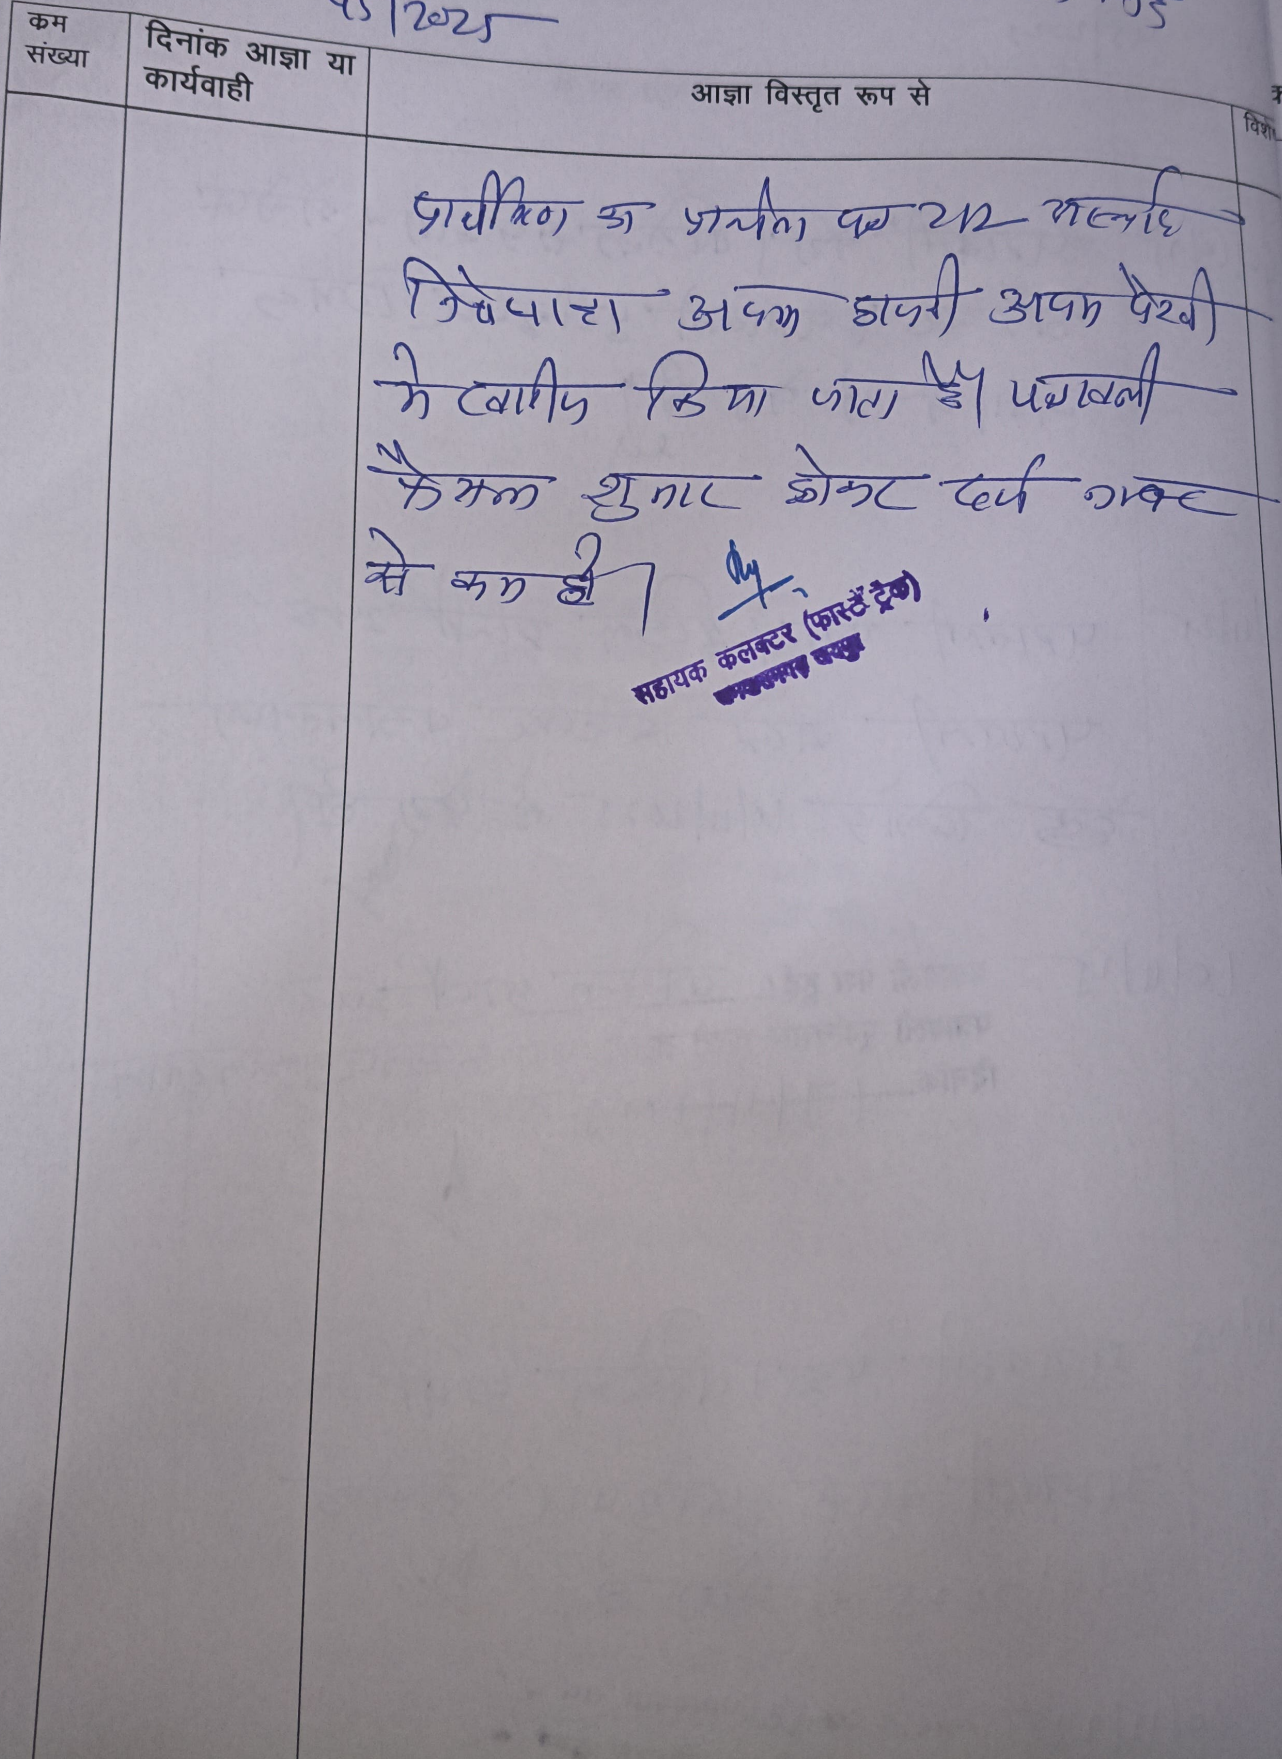 /2025
कम
संख्या
दिनांक आज्ञा या
कार्यवाही
आज्ञा विस्तृत रूप से
प्रार्थीगण का प्रार्थना पत्र
निषेधाज्ञा अदम हाजरी अदम पैरवी
मे खारीज किया जाता है। पत्रावली
फैसल शुमार होकर दर्ज नम्बर
से कम हो।
सहायक कलक्टर (फास्ट ट्रैक)